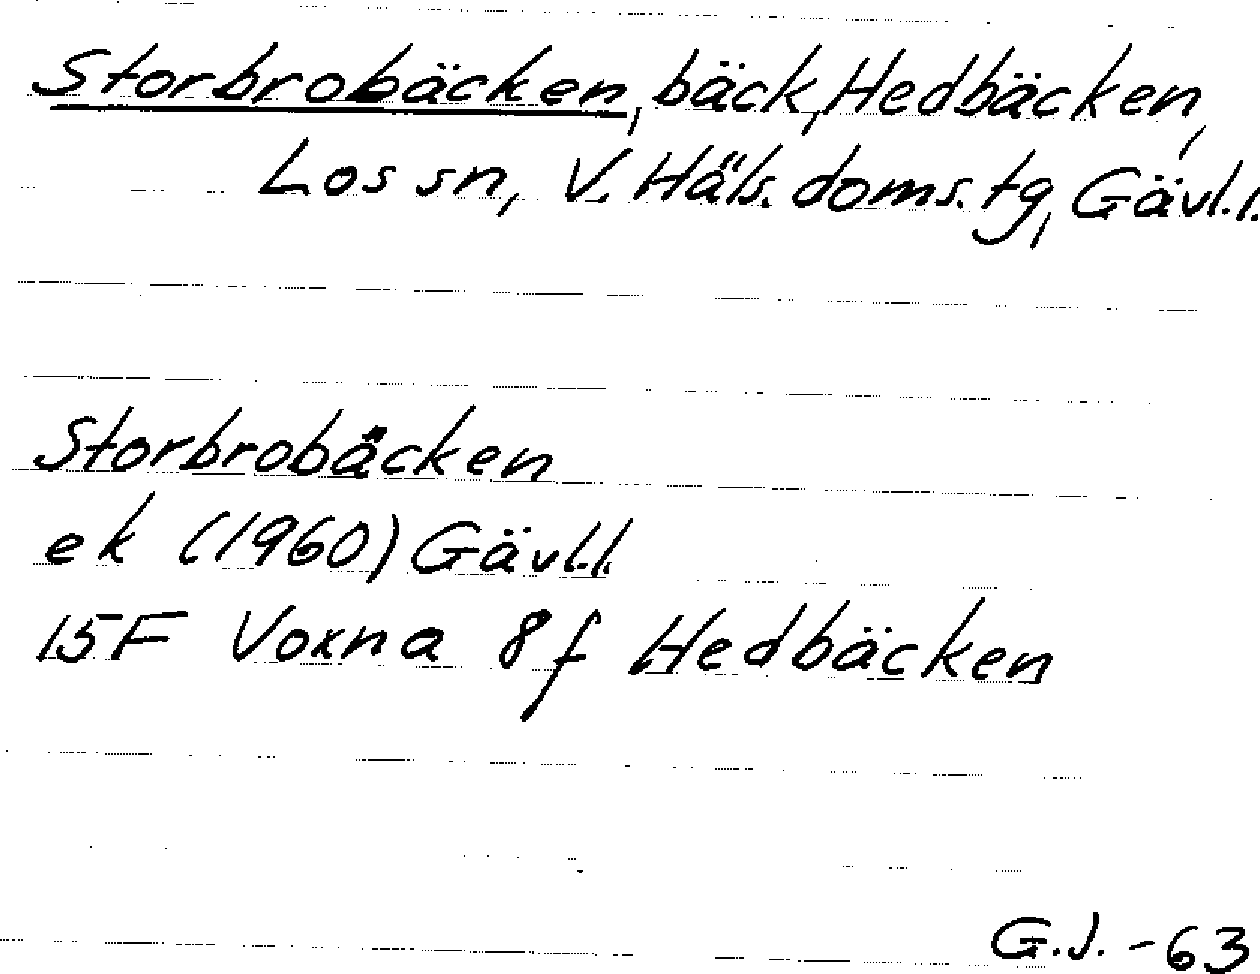 Storbrobäcken, bäck, Hedbäcken,
Los sn, V. Häls. doms. tg, Gävl.l.
Storbrobäcken
ek (1960) Gävl.l.
15F Voxna 8f Hedbäcken
G.J. -63